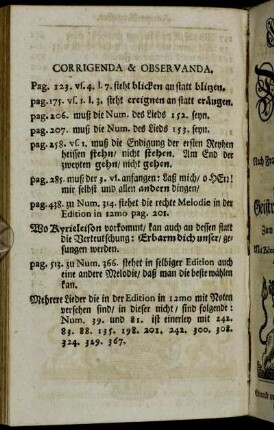 CORRIGENDA & OBSERVANDA.
Pag. 123. vſ. 4. l. 7. ſteht blicken an ſtatt blitzen.
pag. 175. vſ. 1. l. 3. ſteht ereignen an ſtatt eräugen.
pag. 206. muß die Num. des Lieds 152. ſeyn.
pag. 207. muß die Num. des Lieds 153. ſeyn.
pag. 258. vſ 1. muß die Endigung der erſten Reyhen
heiſſen ſtehn/ nicht ſtehen. Am End der
zweyten gehn/ nicht gehen.
pag. 285. muß der 3. vſ. anfangen: Laß mich/ o HErr!
mir ſelbſt und allen andern dingen/
pag. 438. zu Num. 314. ſtehet die rechte Melodie in der
Edition in 12mo pag. 201.
Wo Kyrieleiſon vorkommt/ kan auch an deſſen ſtatt
die Verteutſchung: Erbarm dich unſer/ ge-
ſungen werden.
pag. 513. zu Num. 366. ſtehet in ſelbiger Edition auch
eine andere Melodie/ daß man die beſte wählen
kan.
Mehrere Lieder die in der Edition in 12mo mit Noten
verſehen ſind/ in dieſer nicht/ ſind folgende:
Num. 39. und 81. iſt einerley mit 242.
83. 88. 135. 198. 201. 242. 300. 308.
324. 329. 367.